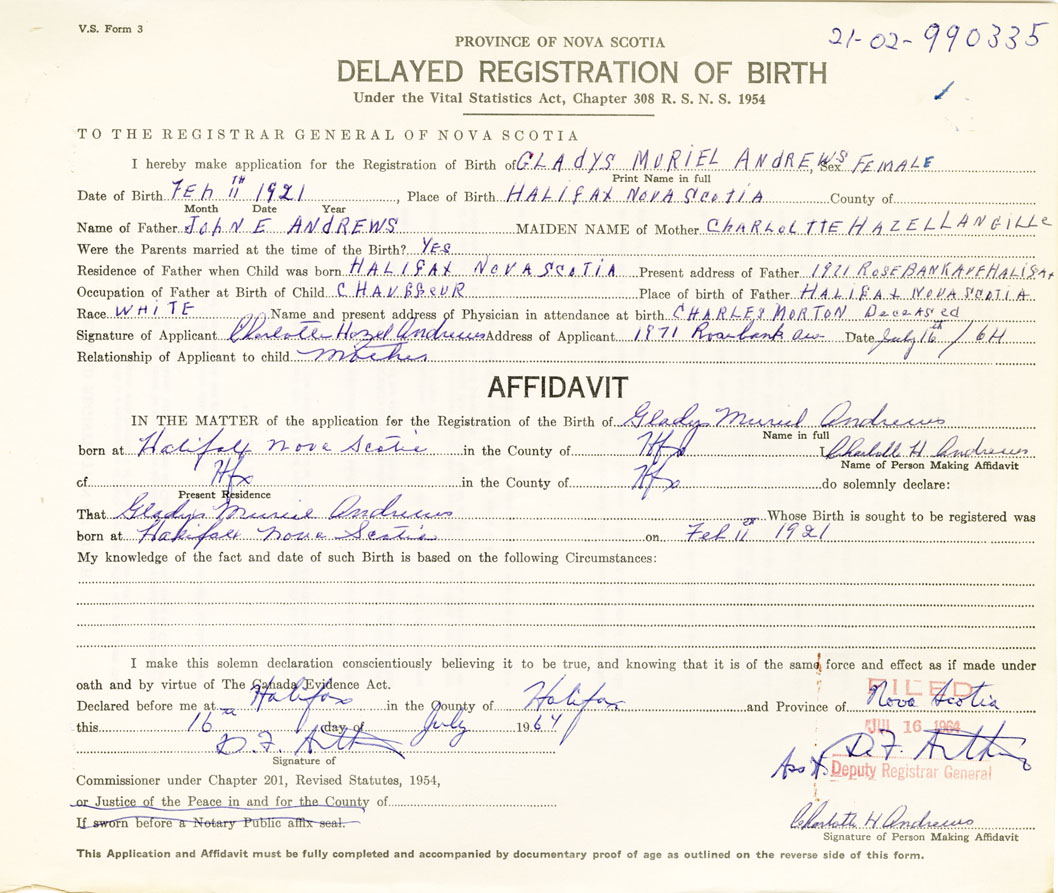 V.S. Form 3
21-02-990335
PROVINCE OF NOVA SCOTIA
DELAYED REGISTRATION OF BIRTH
Under the Vital Statistics Act, Chapter 308 R. S. N. S. 1954
TO THE REGISTRAR GENERAL OF NOVA SCOTIA
I hereby make application for the Registration of Birth of GLADYS MURIEL ANDREWS, Sex FEMALE
Print Name in full
Date of Birth FEB 11TH 1921, Place of Birth HALIFAX NOVA SCOTIA County of
Month Date Year
Name of Father JOHN E ANDREWS MAIDEN NAME of Mother CHARLOTTE HAZEL LANGILLE
Were the Parents married at the time of the Birth? YES
Residence of Father when Child was born HALIFAX NOVA SCOTIA Present address of Father 1921 ROSEBANK AVE HALIFAX
Occupation of Father at Birth of Child CHAUFFEUR Place of birth of Father HALIFAX NOVA SCOTIA
Race WHITE Name and present address of Physician in attendance at birth CHARLES MORTON Deceased
Signature of Applicant Charlotte Hazel Andrews Address of Applicant 1871 Rosebank ave Date July 16th / 64
Relationship of Applicant to child mother
AFFIDAVIT
IN THE MATTER of the application for the Registration of the Birth of Gladys Muriel Andrews
Name in full
born at Halifax Nova Scotia in the County of Hfx I, Charlotte H. Andrews
Name of Person Making Affidavit
of Hfx in the County of Hfx do solemnly declare:
Present Residence
That Gladys Muriel Andrews Whose Birth is sought to be registered was
born at Halifax Nova Scotia on Feb 11th 1921
My knowledge of the fact and date of such Birth is based on the following Circumstances:
I make this solemn declaration conscientiously believing it to be true, and knowing that it is of the same force and effect as if made under
oath and by virtue of The Canada Evidence Act.
FILED
Declared before me at Halifax in the County of Halifax and Province of Nova Scotia
this 16th day of July 1964
JUL 16 1964
D.F. Arthur
D.F. Arthur
Signature of
Ass't. Deputy Registrar General
Commissioner under Chapter 201, Revised Statutes, 1954,
or Justice of the Peace in and for the County of
If sworn before a Notary Public affix seal.
Charlotte H Andrews
Signature of Person Making Affidavit
This Application and Affidavit must be fully completed and accompanied by documentary proof of age as outlined on the reverse side of this form.